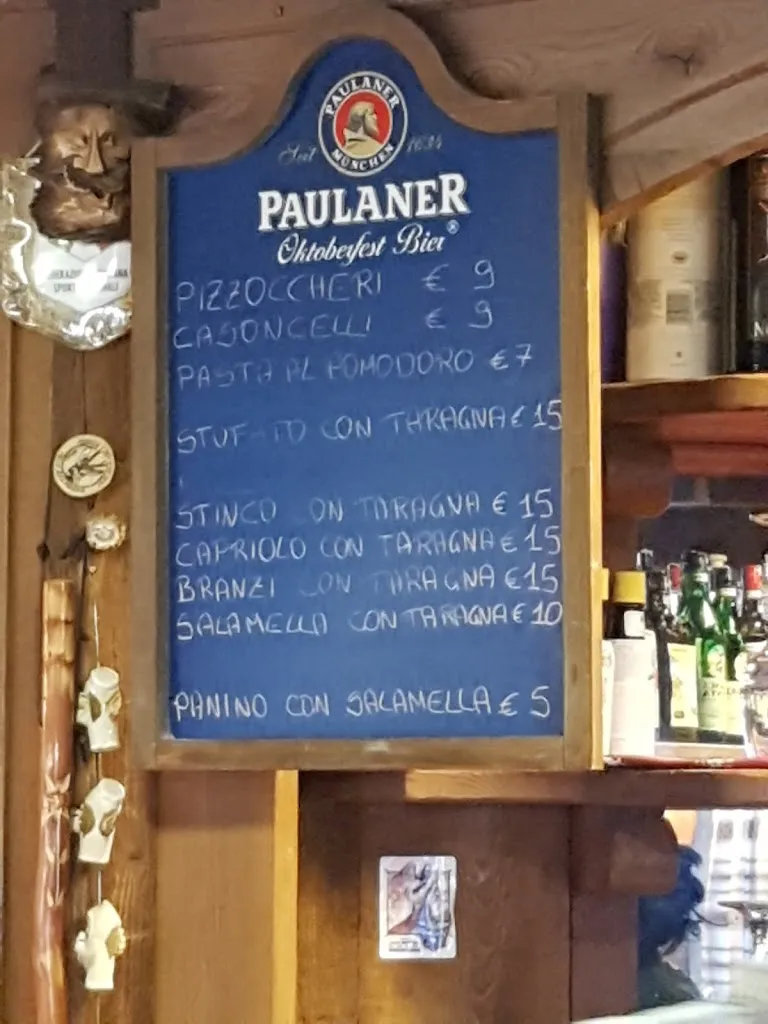 PAULANER
MÜNCHEN
Seit 1634
PAULANER
Oktoberfest Bier®
PIZZOCCHERI € 9
CASONCELLI € 9
PASTA AL POMODORO € 7
STUF TO CON TARAGNA € 15
STINCO ON TARAGNA € 15
CAPRIOLO CON TARAGNA € 15
BRANZI CON TARAGNA € 15
SALAMELLA CON TARAGNA € 10
PANINO CON SALAMELLA € 5